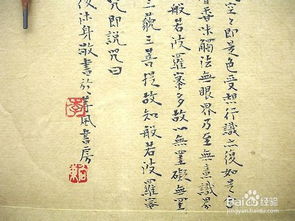 空空即是色受想行識亦復如是
香味觸法無眼界乃至無意識界
般若波羅蜜多故心無罣礙無罣
三藐三菩提故知般若波羅蜜
咒即說咒曰
身敬書於風書房
Baidu经验